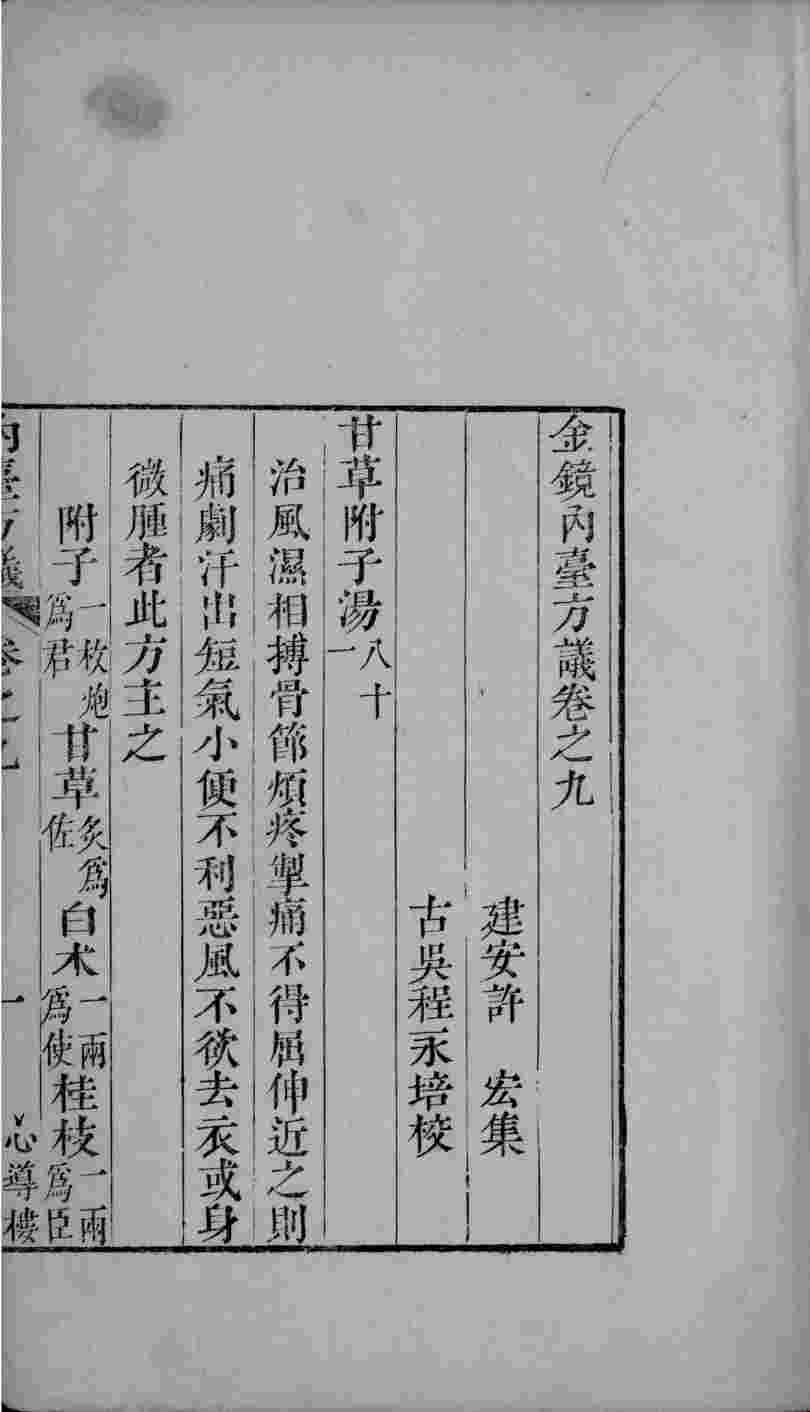 金鏡內臺方議卷之九
建安許　宏集
古吳程永培校
甘草附子湯八十一
治風濕相搏骨節煩疼掣痛不得屈伸近之則
痛劇汗出短氣小便不利惡風不欲去衣或身
微腫者此方主之
附子一枚炮爲君甘草炙爲佐白朮一兩爲使桂枝一兩爲臣
內臺方議　卷之九　一　心導樓